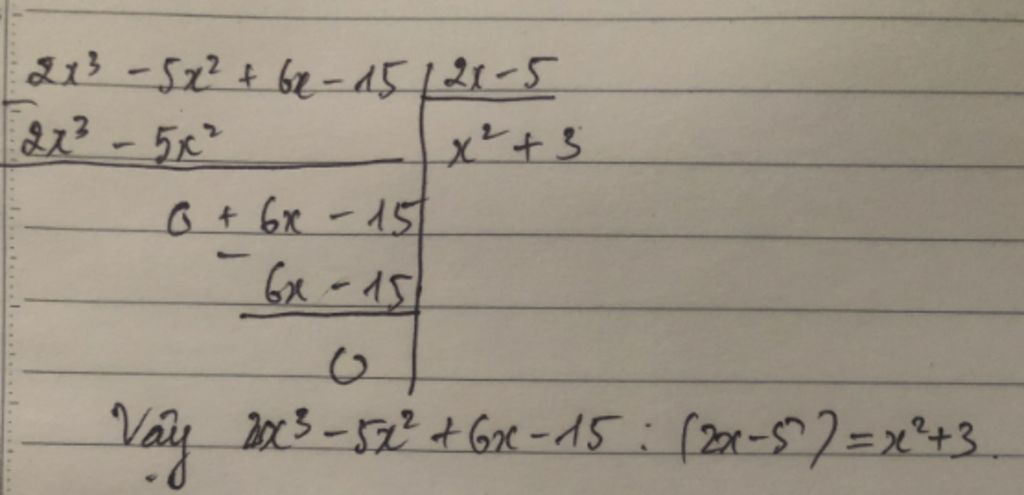 2x³ - 5x² + 6x - 15 | 2x - 5
- 2x³ - 5x² x² + 3
0 + 6x - 15
-
6x - 15
0
Vậy 2x³ - 5x² + 6x - 15 : (2x - 5) = x² + 3.